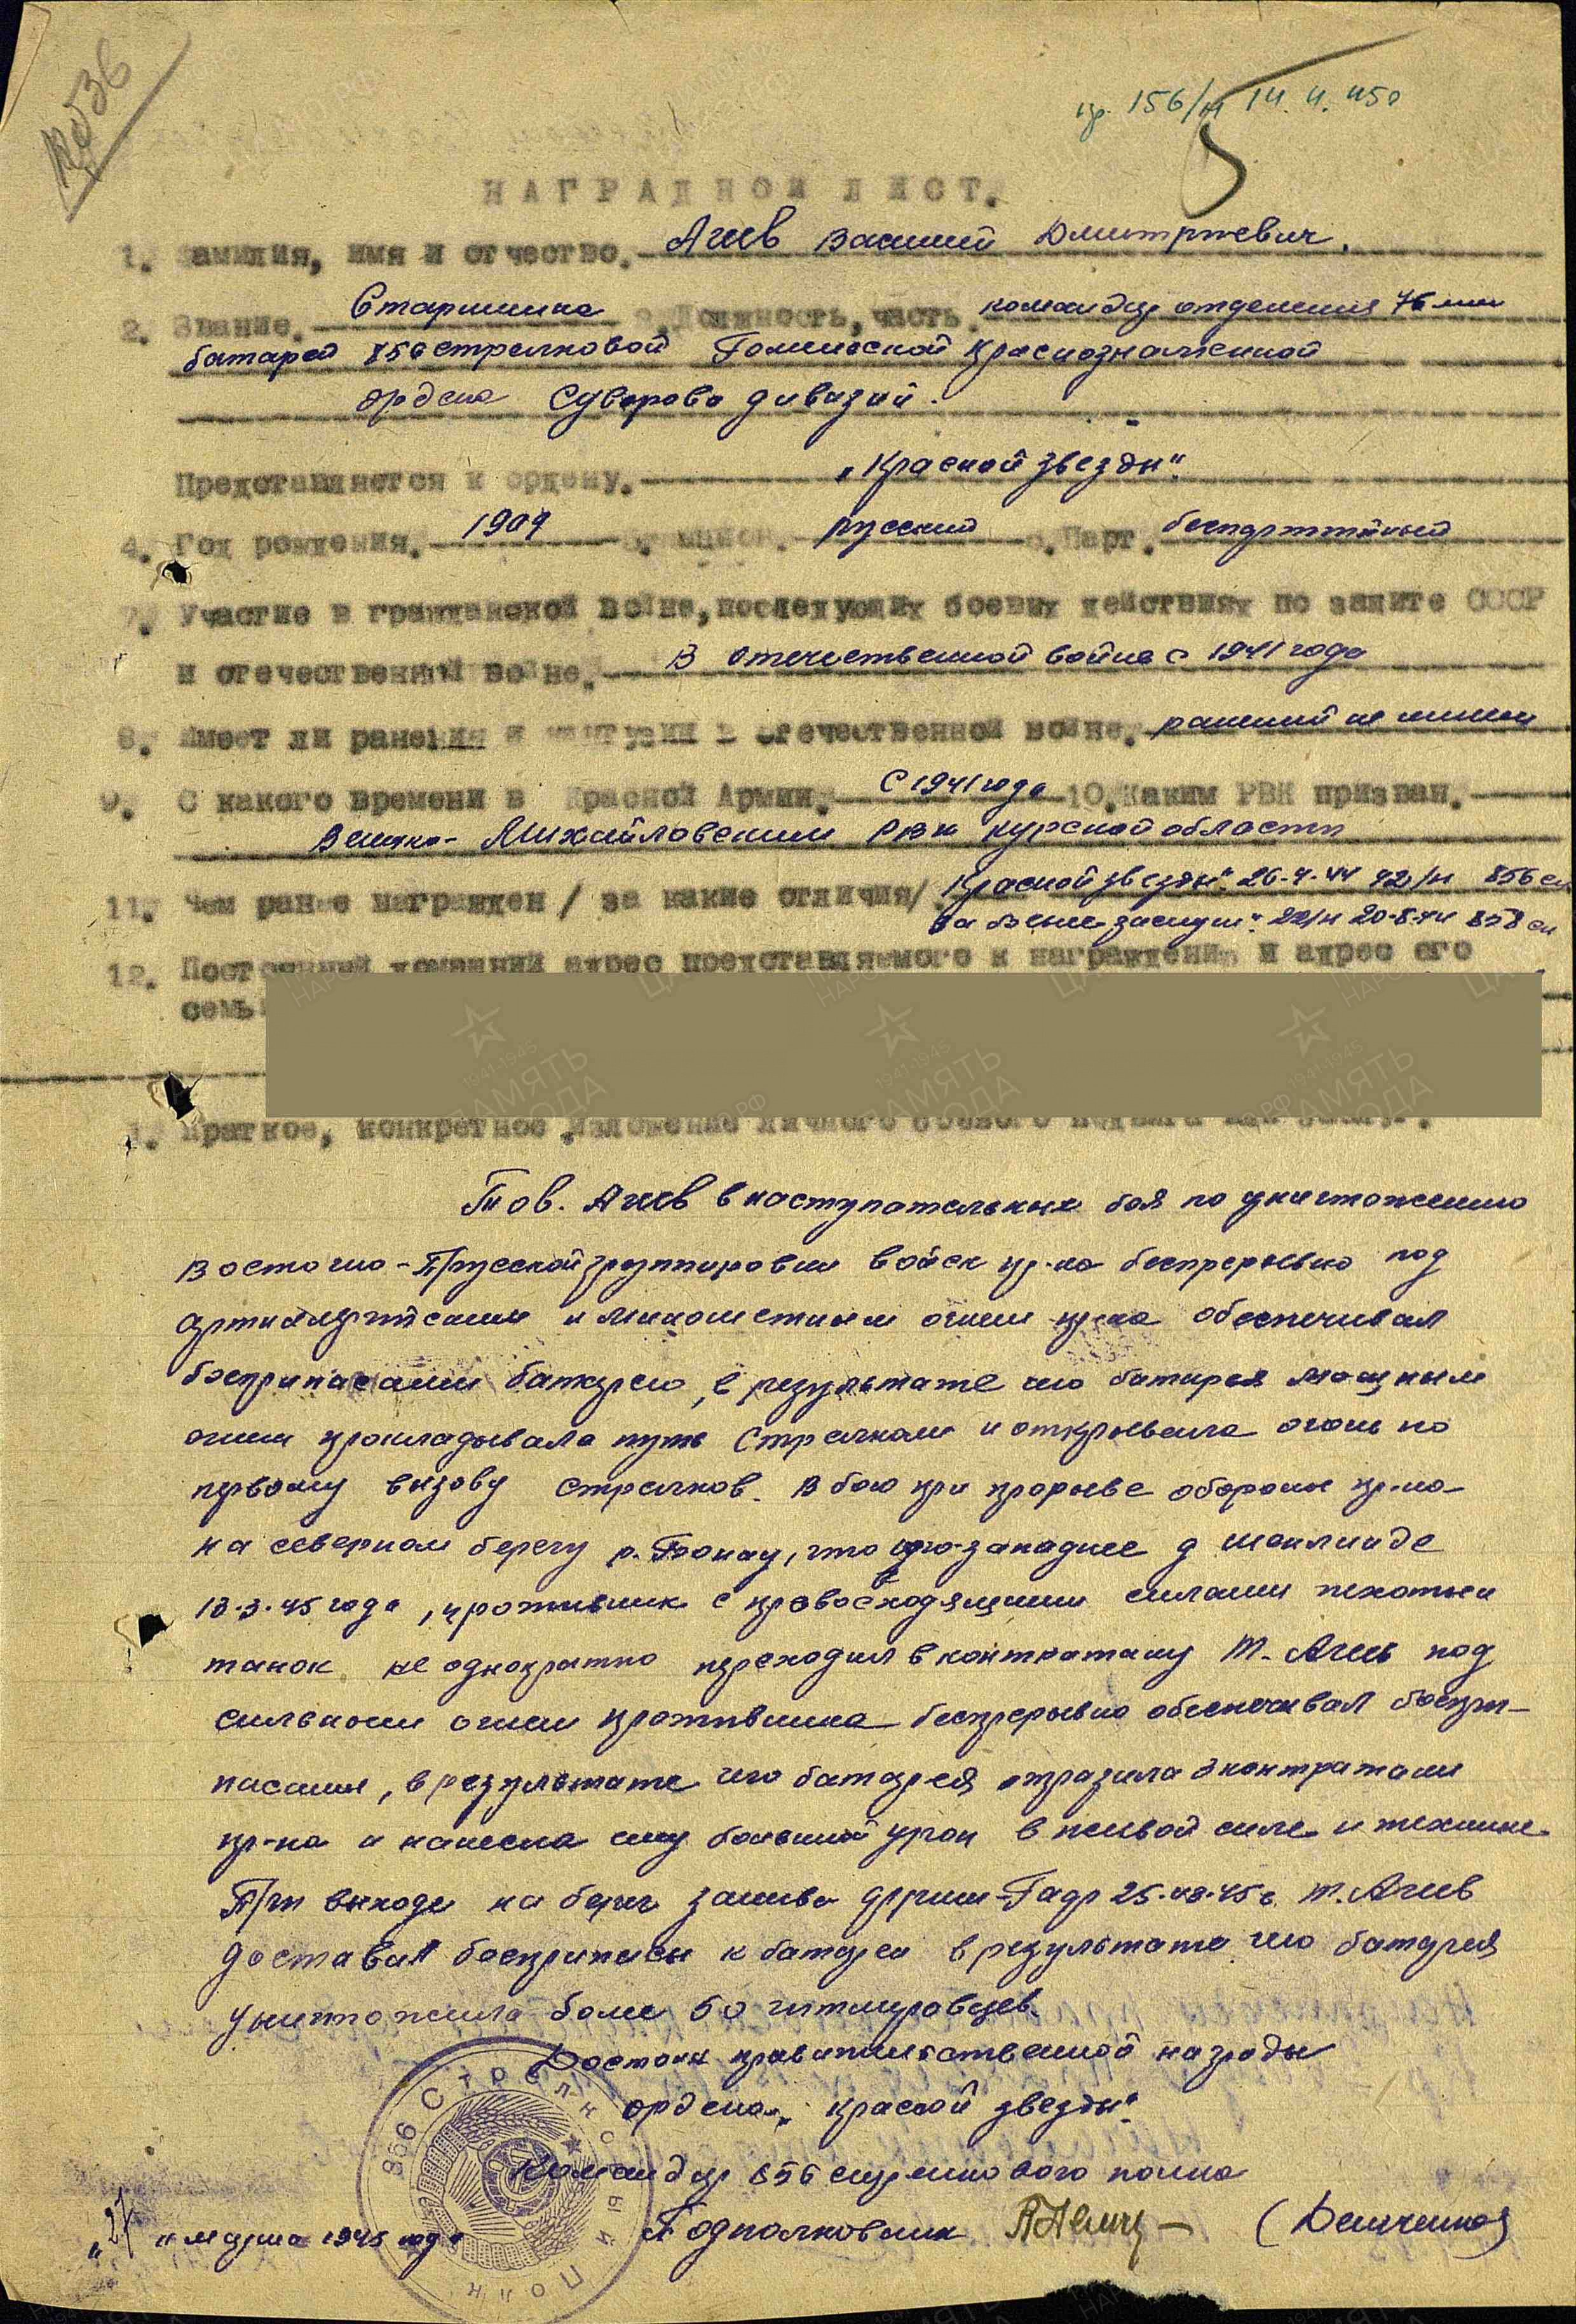 пр. 156/н 14.4.45г
НАГРАДНОЙ ЛИСТ.
1. Фамилия, имя и отчество. Агеев Василий Дмитриевич.
2. Звание. Старшина 3. Должность, часть. командир отделения 76 мм
батареи 856 стрелковой Гомельской Краснознаменной
ордена Суворова дивизии.
Представляется к ордену. „Красной звезды"
4. Год рождения. 1909 5. Национ. русский 6. Парт. беспартийный
7. Участие в гражданской войне, последующих боевых действиях по защите СССР
и отечественной войне. В отечественной войне с 1941 года
8. Имеет ли ранения и контузии в отечественной войне. ранений не имеет
9. С какого времени в Красной Армии. С 1941 года 10. Каким РВК призван.
Михайловским РВК Курской области
11. Чем ранее награжден / за какие отличия/. Красной звезды" 26.7.44 42/н 856 сп
За боевые заслуги" 22/н 20.8.44 858 сп
12. Постоянный домашний адрес представляемого к награждению и адрес его
семьи
Краткое, конкретное изложение личного боевого подвига или заслуг.
Тов. Агеев в наступательных боя по уничтожению
Восточно-Прусской группировки войск пр-ка беспрерывно под
артиллерийским и минометным огнем пр-ка обеспечивал
боеприпасами батарею, в результате чего батарея мощным
огнем прокладывала путь стрелкам и открывала огонь по
первому вызову стрелков. В бою при прорыве обороны пр-ка
на северном берегу р. Фронау, что юго-западнее д
13.3.45 года, противник с превосходящими силами пехоты и
танок не однократно переходил в контратаку т. Агеев под
сильным огнем противника беспрерывно обеспечивал боепри-
пасами, в результате чего батарея отразила 3 контратаки
пр-ка и нанесла ему большой урон в живой силе и технике
При выходе на берег залива Фришес-Гаф 25.03.45г. т. Агеев
доставил боеприпасы к батареи в результате чего батарея
уничтожила более 50 гитлеровцев.
Достоин правительственной награды
ордена „Красной звезды"
Командир 856 стрелкового полка
Подполковник (Демченко)
„27" марта 1945 года
856 Стрелковый Полк